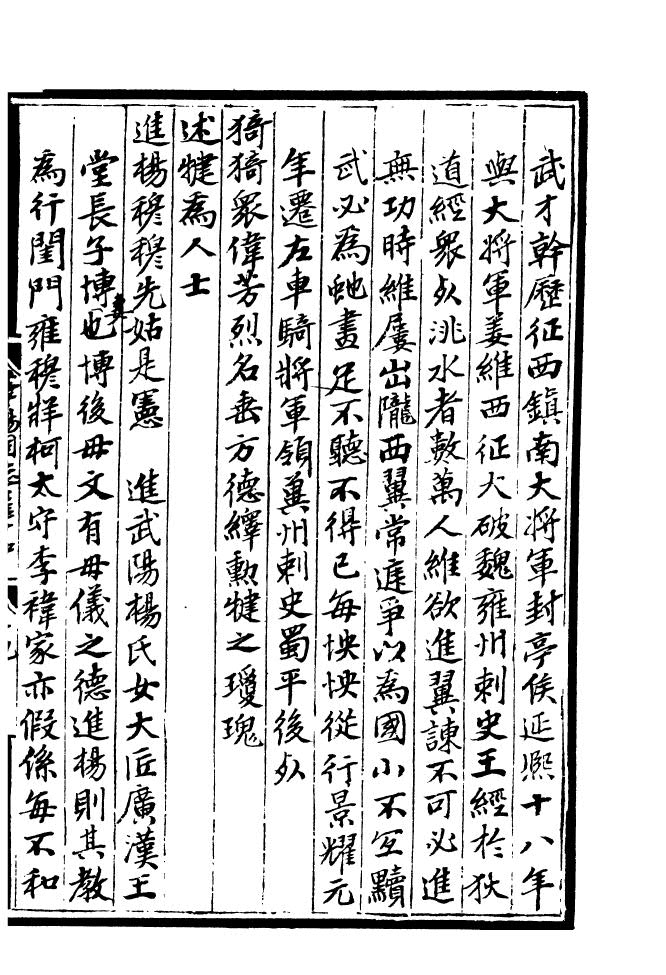 武才幹歷征西鎮南大將軍封亭侯延熙十八年
與大將軍姜維西征大破魏雍州刺史王經於狄
道經衆死洮水者數萬人維欲進翼諫不可必進
無功時維屢出隴西翼常廷爭以為國小不宜黷
武必為虵畫足不聽不得已每怏怏從行景耀元
年遷左車騎將軍領兾州刺史蜀平後死
猗猗衆偉芳烈名垂方德繹勲犍之瓊瑰
述犍為人士
進楊穆穆先姑是憲　進武陽楊氏女大匠廣漢王
堂長子博妻也博後母文有母儀之德進楊則其教
為行閨門雍穆牂柯太守李禕家亦假係每不和